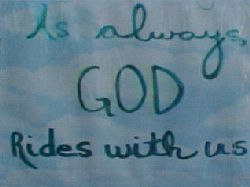 As always,
GOD
Rides with us